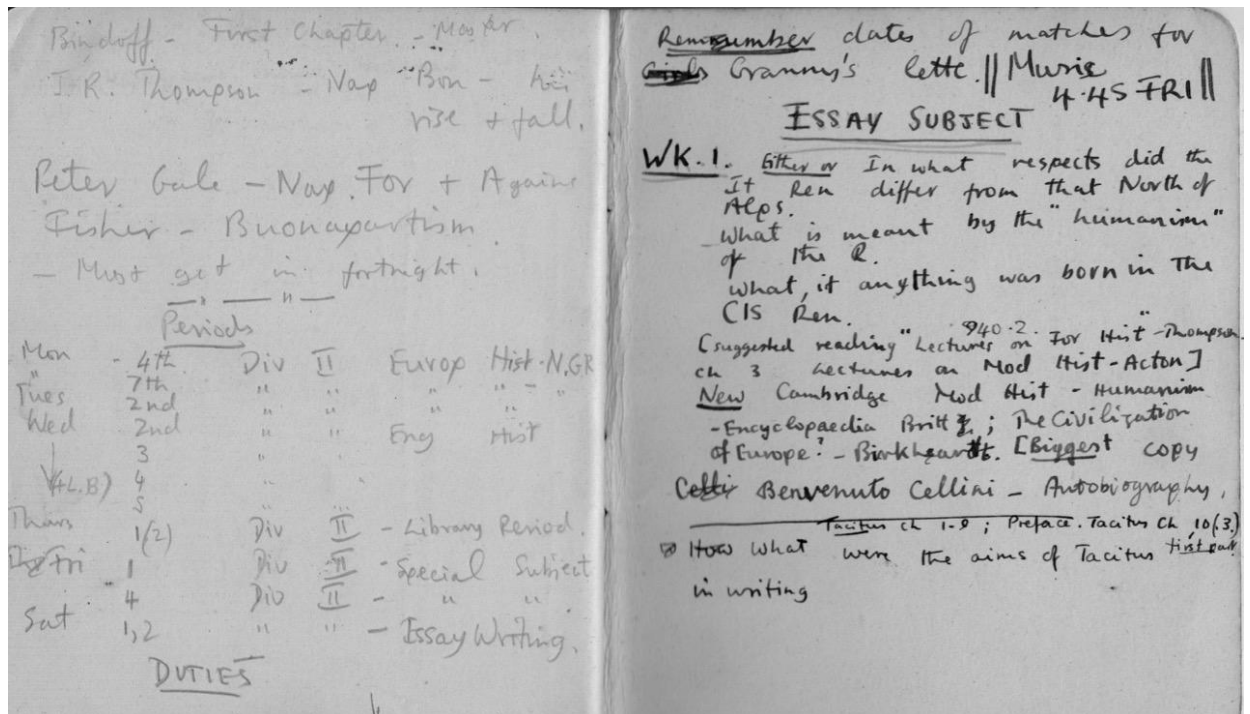 Bindoff - First Chapter - Master.
J.R. Thompson - Nap Bon - his
rise + fall.
Peter Gale - Nap. For + Agains
Fisher - Buonapartism
- Must get in fortnight.
— " — " —
Periods
Mon - 4th Div II Europ Hist - N.GR
" 7th " " " " "
Tues 2nd " " " " "
Wed 2nd " " Eng Hist
3 "
(4L.B) 4 " "
5
Thurs 1(2) Div II - Library Period.
Fri 1 Div II - Special Subject
4 Div II - " "
Sat 1,2 " " - Essay Writing.
DUTIES
Remember dates of matches for
Granny's lette. || Music
4.45 FRI ||
ESSAY SUBJECT
WK.1. Either or In what respects did the
It Ren differ from that North of
Alps.
- What is meant by the "humanism"
of the R.
What, if anything was born in the
C15 Ren.
940.2.
[suggested reading "Lectures on For Hist" - Thompson
ch 3 Lectures on Mod Hist - Acton]
New Cambridge Mod Hist - Humanism
- Encyclopaedia Britt ; The Civilization
of Europe? - Birkheardt. [Biggest copy
Benvenuto Cellini - Autobiography.
Tacitus ch 1-9 ; Preface. Tacitus Ch 10(3.)
First part
How What were the aims of Tacitus
in writing